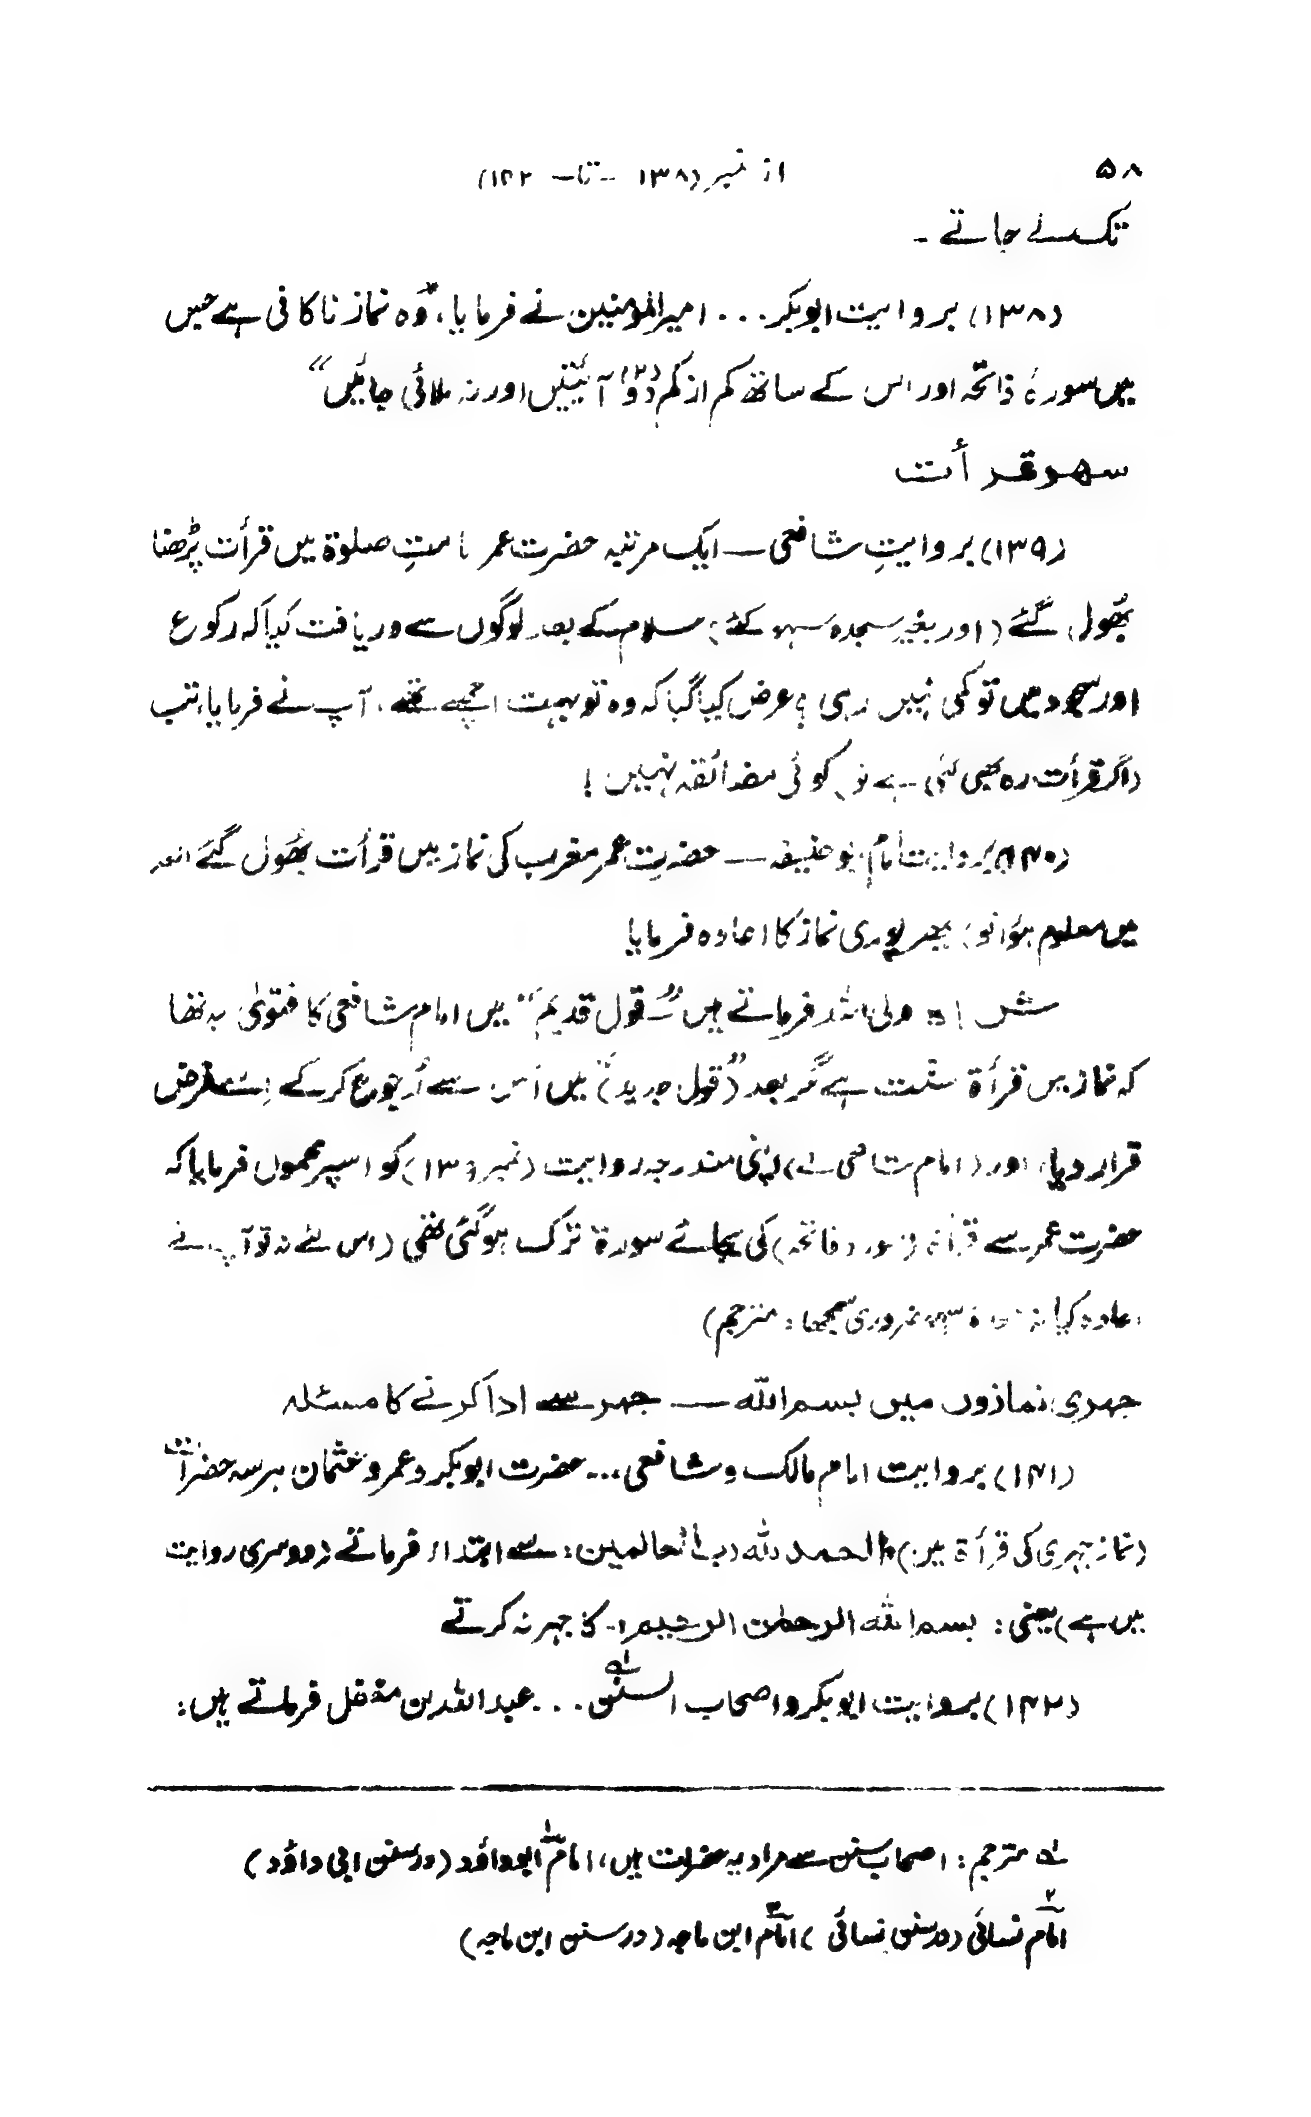 ۵۸
از نمبر (۱۳۸ - تا - ۱۴۲)
تک لے جاتے -
(۱۳۸) بروایت ابوبکر... امیرالمومنین نے فرمایا، "وہ نماز ناکافی ہے جس
میں سورۂ فاتحہ اور اس کے ساتھ کم از کم دو (۲) آیتیں اور نہ ملائی جائیں"
سهو قرأت
(۱۳۹) بروایتِ شافعی — ایک مرتبہ حضرت عمر امامتِ صلوٰۃ میں قرأت پڑھنا
بھول گئے (اور بغیر سجدہ سہو کئے) سلام کے بعد لوگوں سے دریافت کیا کہ رکوع
اور سجود میں تو کمی نہیں رہی؟ عرض کیا گیا کہ وہ تو بہت اچھے تھے، آپ نے فرمایا، تب
(اگر قرأت رہ بھی گئی ہے تو) کوئی مضائقہ نہیں!
(۱۴۰) بروایت امام ابو حنیفہ — حضرتِ عمر مغرب کی نماز میں قرأت بھول گئے (بعد
میں معلوم ہوا تو) پھر پوری نماز کا اعادہ فرمایا
ش اہ ولی اللہ فرماتے ہیں — "قول قدیم" میں امام شافعی کا فتویٰ یہ تھا
کہ نماز میں قرأۃ سنت ہے مگر بعد "(قول جدید)" میں اس سے رجوع کر کے اسے فرض
قرار دیا، اور (امام شافعی نے) اپنی مندرجہ روایت (نمبر ۱۳۹) کو اسپر محمول فرمایا کہ
حضرت عمر سے قرأۃ (سورہ فاتحہ) کی بجائے سورۃ ترک ہو گئی تھی (اس لئے نہ تو آپ نے
اعادہ کیا نہ سجدہ سہو ضروری سمجھا: مترجم)
جہری نمازوں میں بسم اللہ — جہر سے ادا کرنے کا مسئلہ
(۱۴۱) بروایت امام مالک و شافعی... حضرت ابوبکر و عمر و عثمان ہر سہ حضرات
(نماز جہری کی قرأۃ میں) الحمد للہ رب العالمین: سے ابتداء فرماتے (دوسری روایت
میں ہے) یعنی: بسم اللہ الرحمٰن الرحیم: کا جہر نہ کرتے
(۱۴۲) بروایت ابوبکر و اصحاب السنن لہ... عبد اللہ بن مغفل فرماتے ہیں:
لہ مترجم: اصحاب سنن سے مراد یہ حضرات ہیں، ۱ امام ابوداؤد (در سنن ابی داؤد)
۲ امام نسائی (در سنن نسائی) ۳ امام ابن ماجہ (در سنن ابن ماجہ)